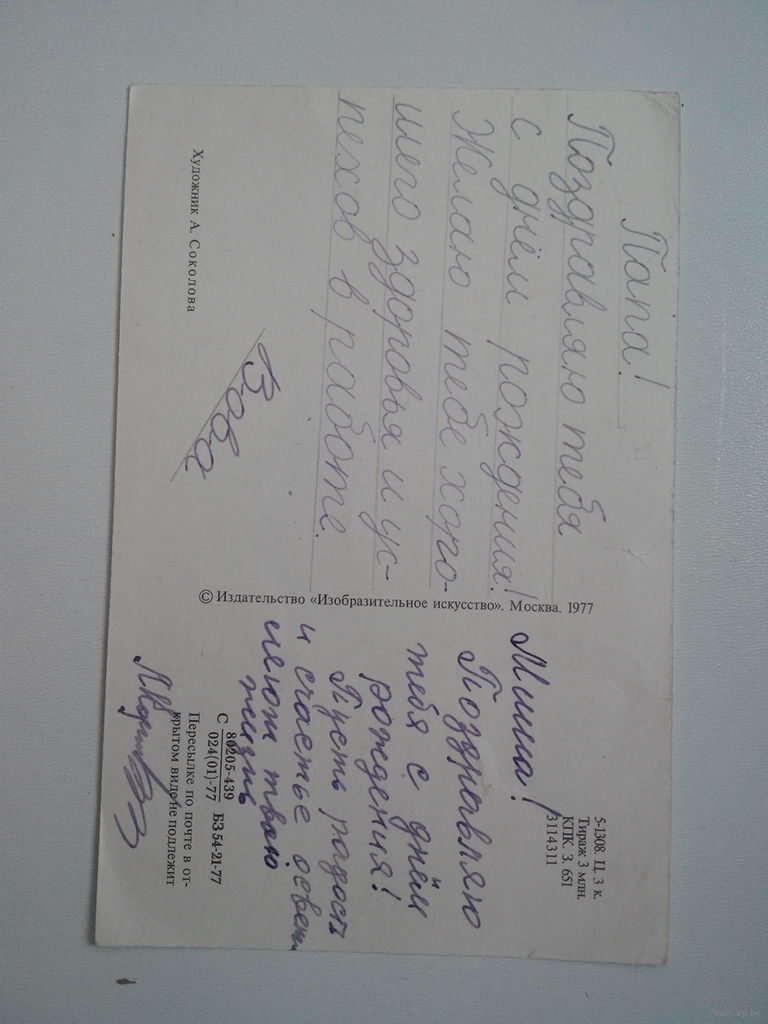 Папа!
Поздравляю тебя
с днём рождения!
Желаю тебе хоро-
шего здоровья и ус-
пехов в работе.
Вова
Художник А. Соколова
© Издательство «Изобразительное искусство». Москва. 1977
5-1308. Ц. 3 к.
Тираж 3 млн.
КПК. З. 651
3114311
Миша!
Поздравляю
тебя с днём
рождения!
Пусть радость
и счастье освещ
жизнь
твою
С 80205-439
024(01)-77 БЗ 54-21-77
Пересылке по почте в от-
крытом виде не подлежит
www.ay.by